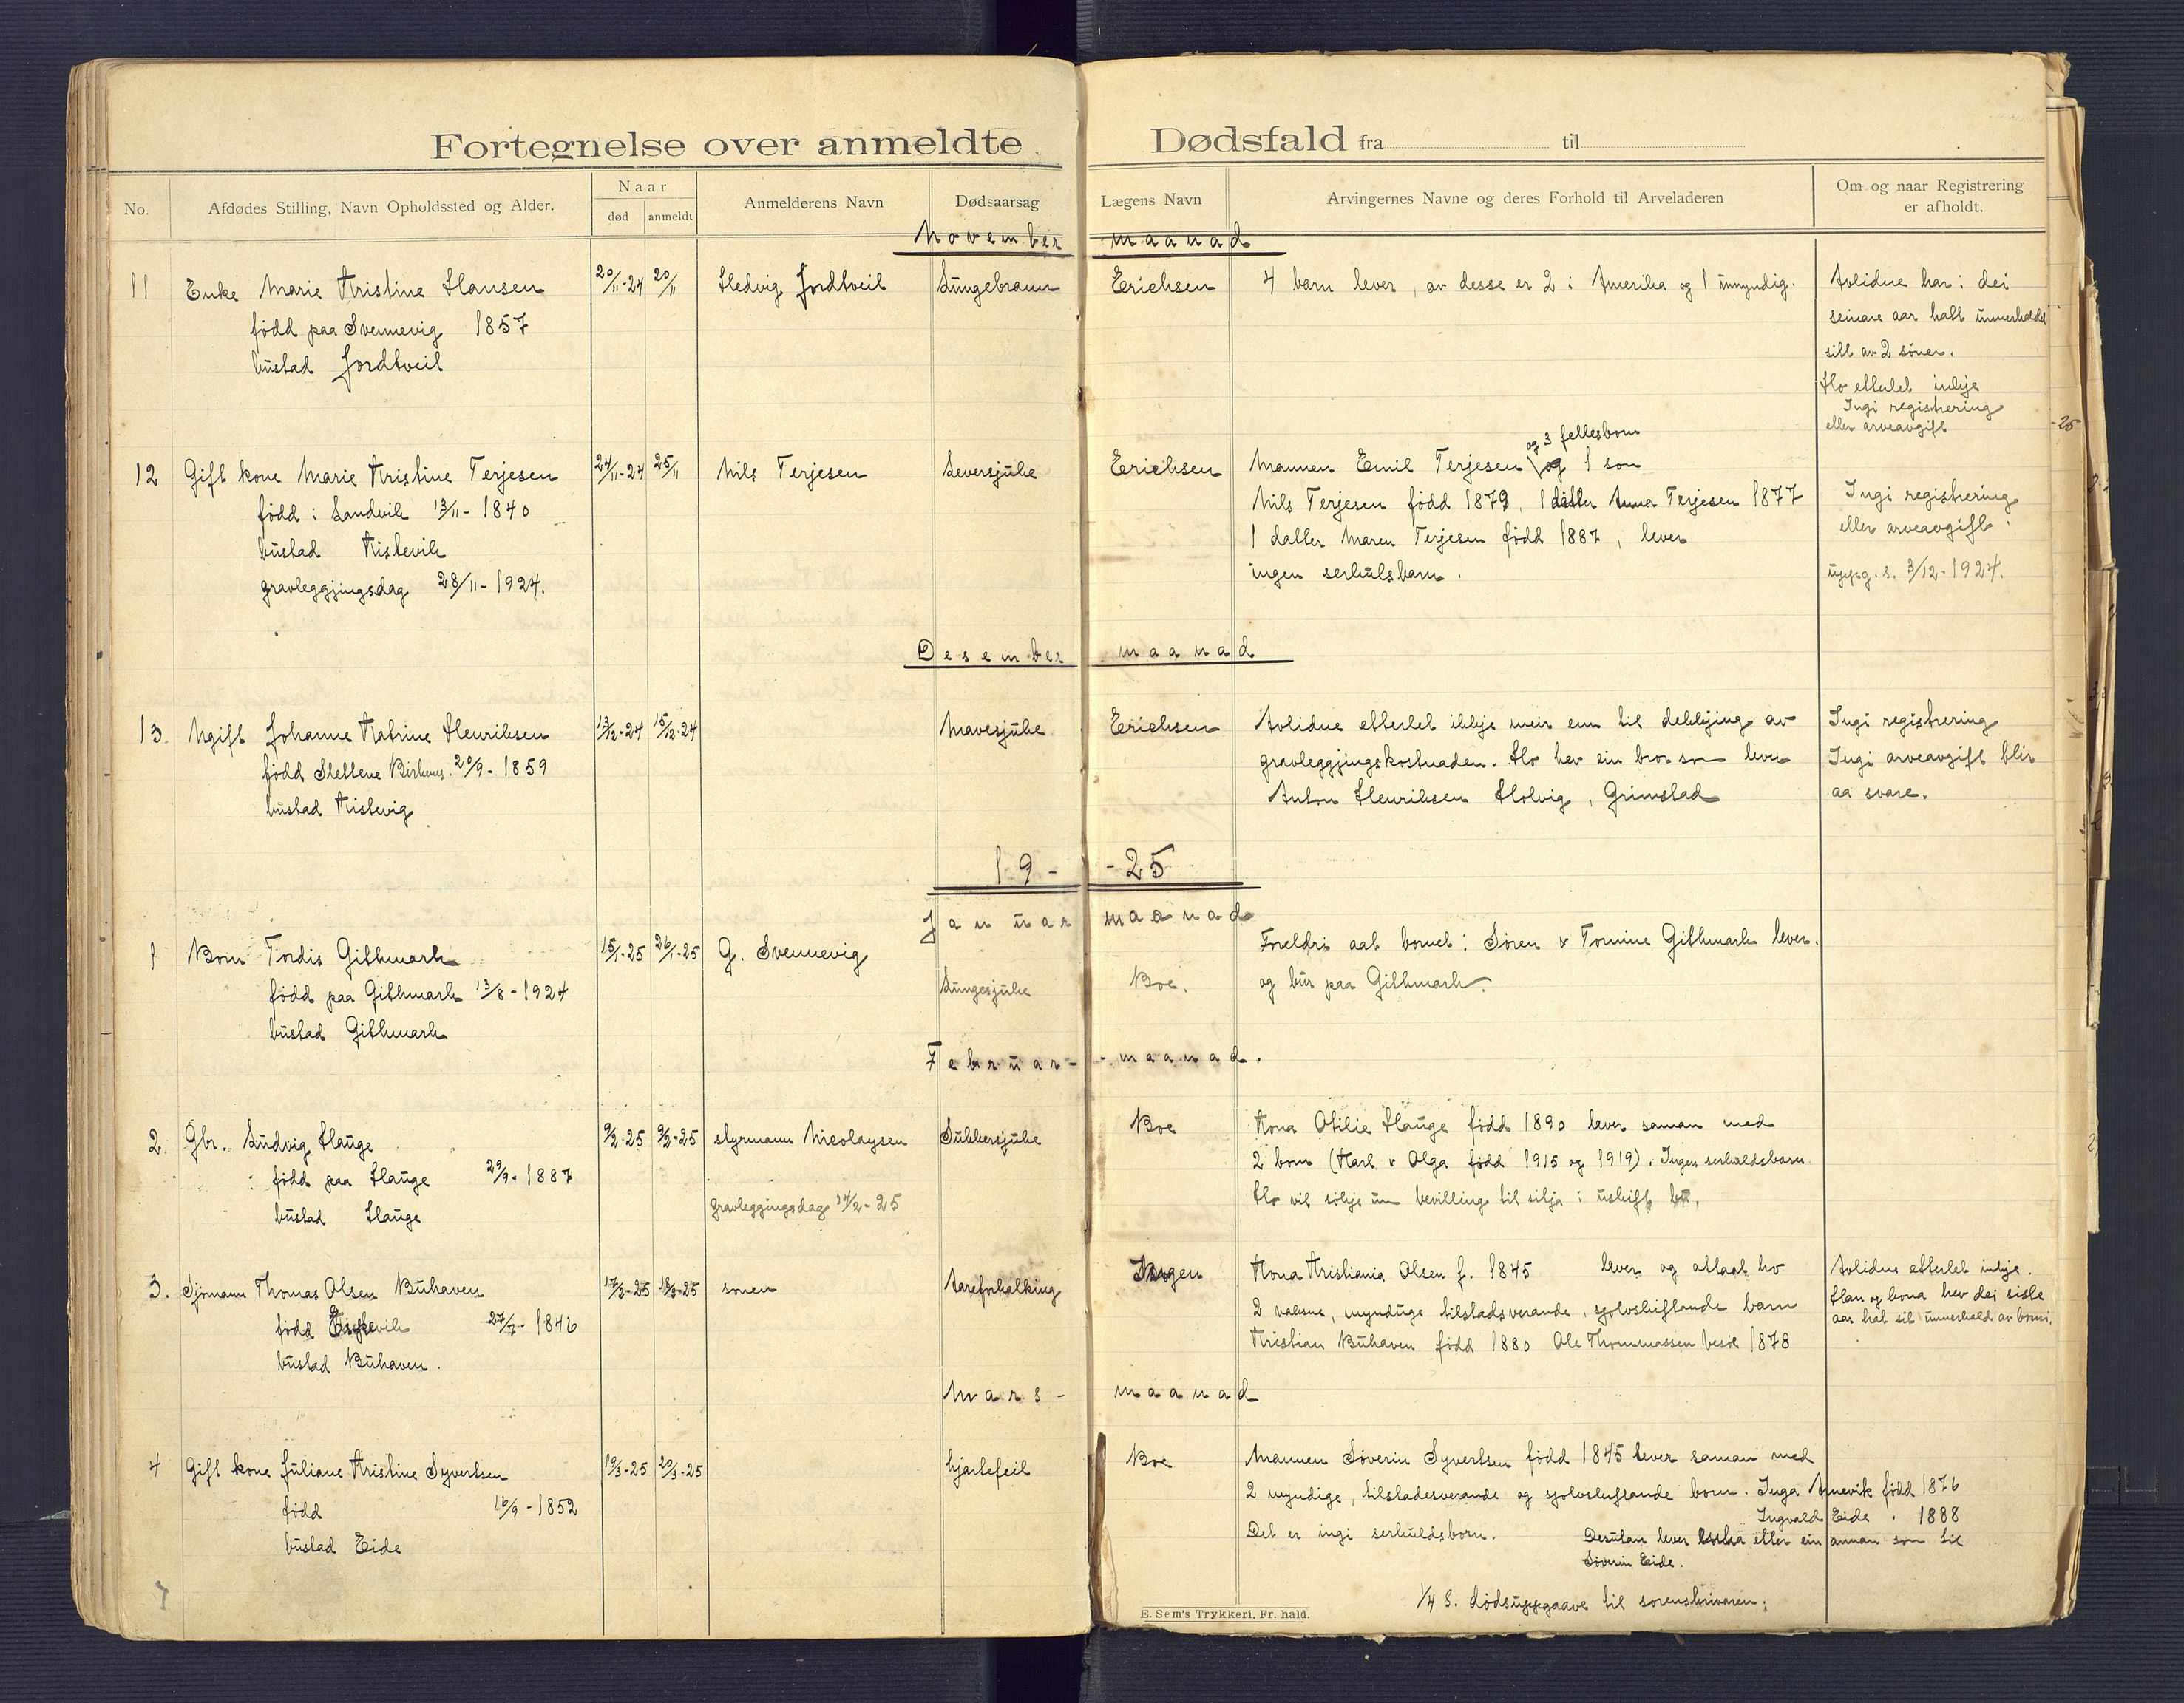 Fortegnelse over anmeldte Dødsfald fra til
No. Afdødes Stilling, Navn Opholdssted og Alder. Naar død anmeldt Anmelderens Navn Dødsaarsag Lægens Navn Arvingernes Navne og deres Forhold til Arveladeren Om og naar Registrering er afholdt.
November maanad
11 Enke Marie Kristine Hansen 20/11-24 20/11 Hedvig Jordtveit Lungebrann Erichsen 4 barn lever, av desse er 2 i Amerika og 1 umyndig. Avlidne har i dei
född paa Svennevig 1857 seinare aar hatt underhaldet
bustad Jordtveit sitt av 2 söner.
Ho etterlet inkje
Ingi registrering
eller arveavgift
-25
og 3 fellesborn
12 Gift kone Marie Kristine Terjesen 24/11-24 25/11 Nils Terjesen Leversjuke Erichsen Mannen Emil Terjesen og 1 son
född i Sandvik 13/11-1840 Nils Terjesen född 1879, 1 datter Anna Terjesen 1877 Ingi registrering
bustad Kistevik 1 datter Maren Terjesen född 1887, lever eller arveavgift.
gravleggjingsdag 28/11-1924. ingen serkulsbarn. uppg. s. 3/12-1924.
Desember maanad
13. Ugift Johanne Katrine Henriksen 13/12-24 15/12-24 Mavesjuke Erichsen Avlidne etterlet ikkje meir enn til dekkjing av Ingi registrering
född Slettene Birkenes. 20/9-1859 gravleggjingskostnaden. Ho hev ein bror som lever Ingi arveavgift blir
bustad Kistevig Anton Henriksen Holvig, Grimstad aa svare.
19- -25
Januar maanad
1 Born Tordis Gitmark 15/1-25 26/1-25 G. Svennevig Foreldri aat bornet: Sören & Tomine Gitmark lever.
född paa Gitmark 13/8-1924 Lungesjuke Boe. og bur paa Gitmark.
bustad Gitmark
Februar- -maanad.
2. Gbr. Ludvig Hauge 9/2-25 9/2-25 styrmann Nicolaysen Sukkersjuke Boe Kona Otilie Hauge född 1890 lever saman med
född paa Hauge 29/9-1887 2 born (Karl & Olga född 1915 og 1919). Ingen serkuldsbarn.
bustad Hauge gravleggingsdag 14/2-25 Ho vil sökje um bevilling til sitja i uskift bu.
3. Sjömann Thomas Olsen Buhaven 17/2-25 18/2-25 sonen Aareforkalking Ingen Kona Kristiania Olsen f. 1845 lever og attaat ho Avlidne etterlet inkje.
född vik 27/7-1846 2 vaksne, mynduge tilstadsverande, sjolvskiftande barn Han og kona hev dei siste
bustad Buhaven. Kristian Buhaven född 1880 Ole Thommassen 1878 aar hat sit underhald av borni.
Mars- maanad
4 Gift kone Juliane Kristine Syvertsen 19/3-25 20/3-25 hjartefeil Boe Mannen Severin Syvertsen född 1845 lever saman med
född 16/9-1852 2 myndige, tilstadesverande og sjolvskiftande born. Inga Arnevik född 1876
bustad Eide Ingvald Eide " 1888
Det er ingi serkuldsborn. Desutan lever etter ein annan son til
Severin Eide.
1/4 S. dödsuppgaave til sorenskrivaren.
E. Sem's Trykkeri, Fr. hald.